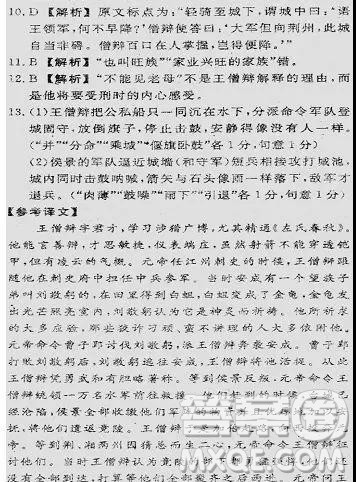 10. D 【解析】 原文标点为:“轻骑至城下,谓城中曰:‘语
王领军,何不早降?’僧辩使答曰:‘大军但向荆州,此城
自当非碍。僧辩百口在人掌握,岂得便降。’”
11. B 【解析】 “也叫旺族”“家业兴旺的家族”错。
12. B 【解析】 “不能见老母”不是王僧辩解释的理由,而
是他将要受刑时的内心感受。
13. (1)王僧辩把公私船只一同沉在水下,分派命令军队登
城固守,放倒旗子,停止击鼓,安静得像没有人一样。
(“并”“分命”“乘城”“偃旗卧鼓”各1分,句意1分)
(2)侯景的军队逼近城墙(和守军)短兵相接攻打城池,
城内同时击鼓呐喊,箭矢与石头像雨一样落下,敌军才
退兵。(“肉薄”“鼓噪”“雨下”“引退”各1分,句意1分)
【参考译文】
王僧辩字君才,学习涉猎广博,尤其精通《左氏春秋》。
他能言善辩,才思敏捷,仪表端庄,虽然射箭不能穿透铠
甲,但有凌云的气概。元帝任江州刺史的时候,王僧辩跟
随他在刺史府中担任中兵参军。当时安成有一个望族子
弟叫刘敬躬的,在田里得到白蛆,白蛆变成了金龟,金龟发
出光芒照亮室内,刘敬躬认为它是神灵而祈祷。他所祈求
的大多应验,那些狡诈刁顽、蛮不讲理的人大多依附他。
元帝命令曹子郢讨伐刘敬躬,派王僧辩奔袭安成。曹子郢
打败刘敬躬后,刘敬躬逃往安成,王僧辩将他活捉。从此
王僧辩凭勇武和有胆略著称。等到侯景反叛,元帝命令王
僧辩统领一万名水军前往救援
经沦陷,侯景全部收缴他们军队的
抚,将他们遣返竟陵。
帝。等到荆、湘两州因猜忌而生二心,元帝命令王僧辩征
讨他们。当时王僧辩认为竟陵
没有全部到达,打算等他们全部聚齐之后再进。元帝问王